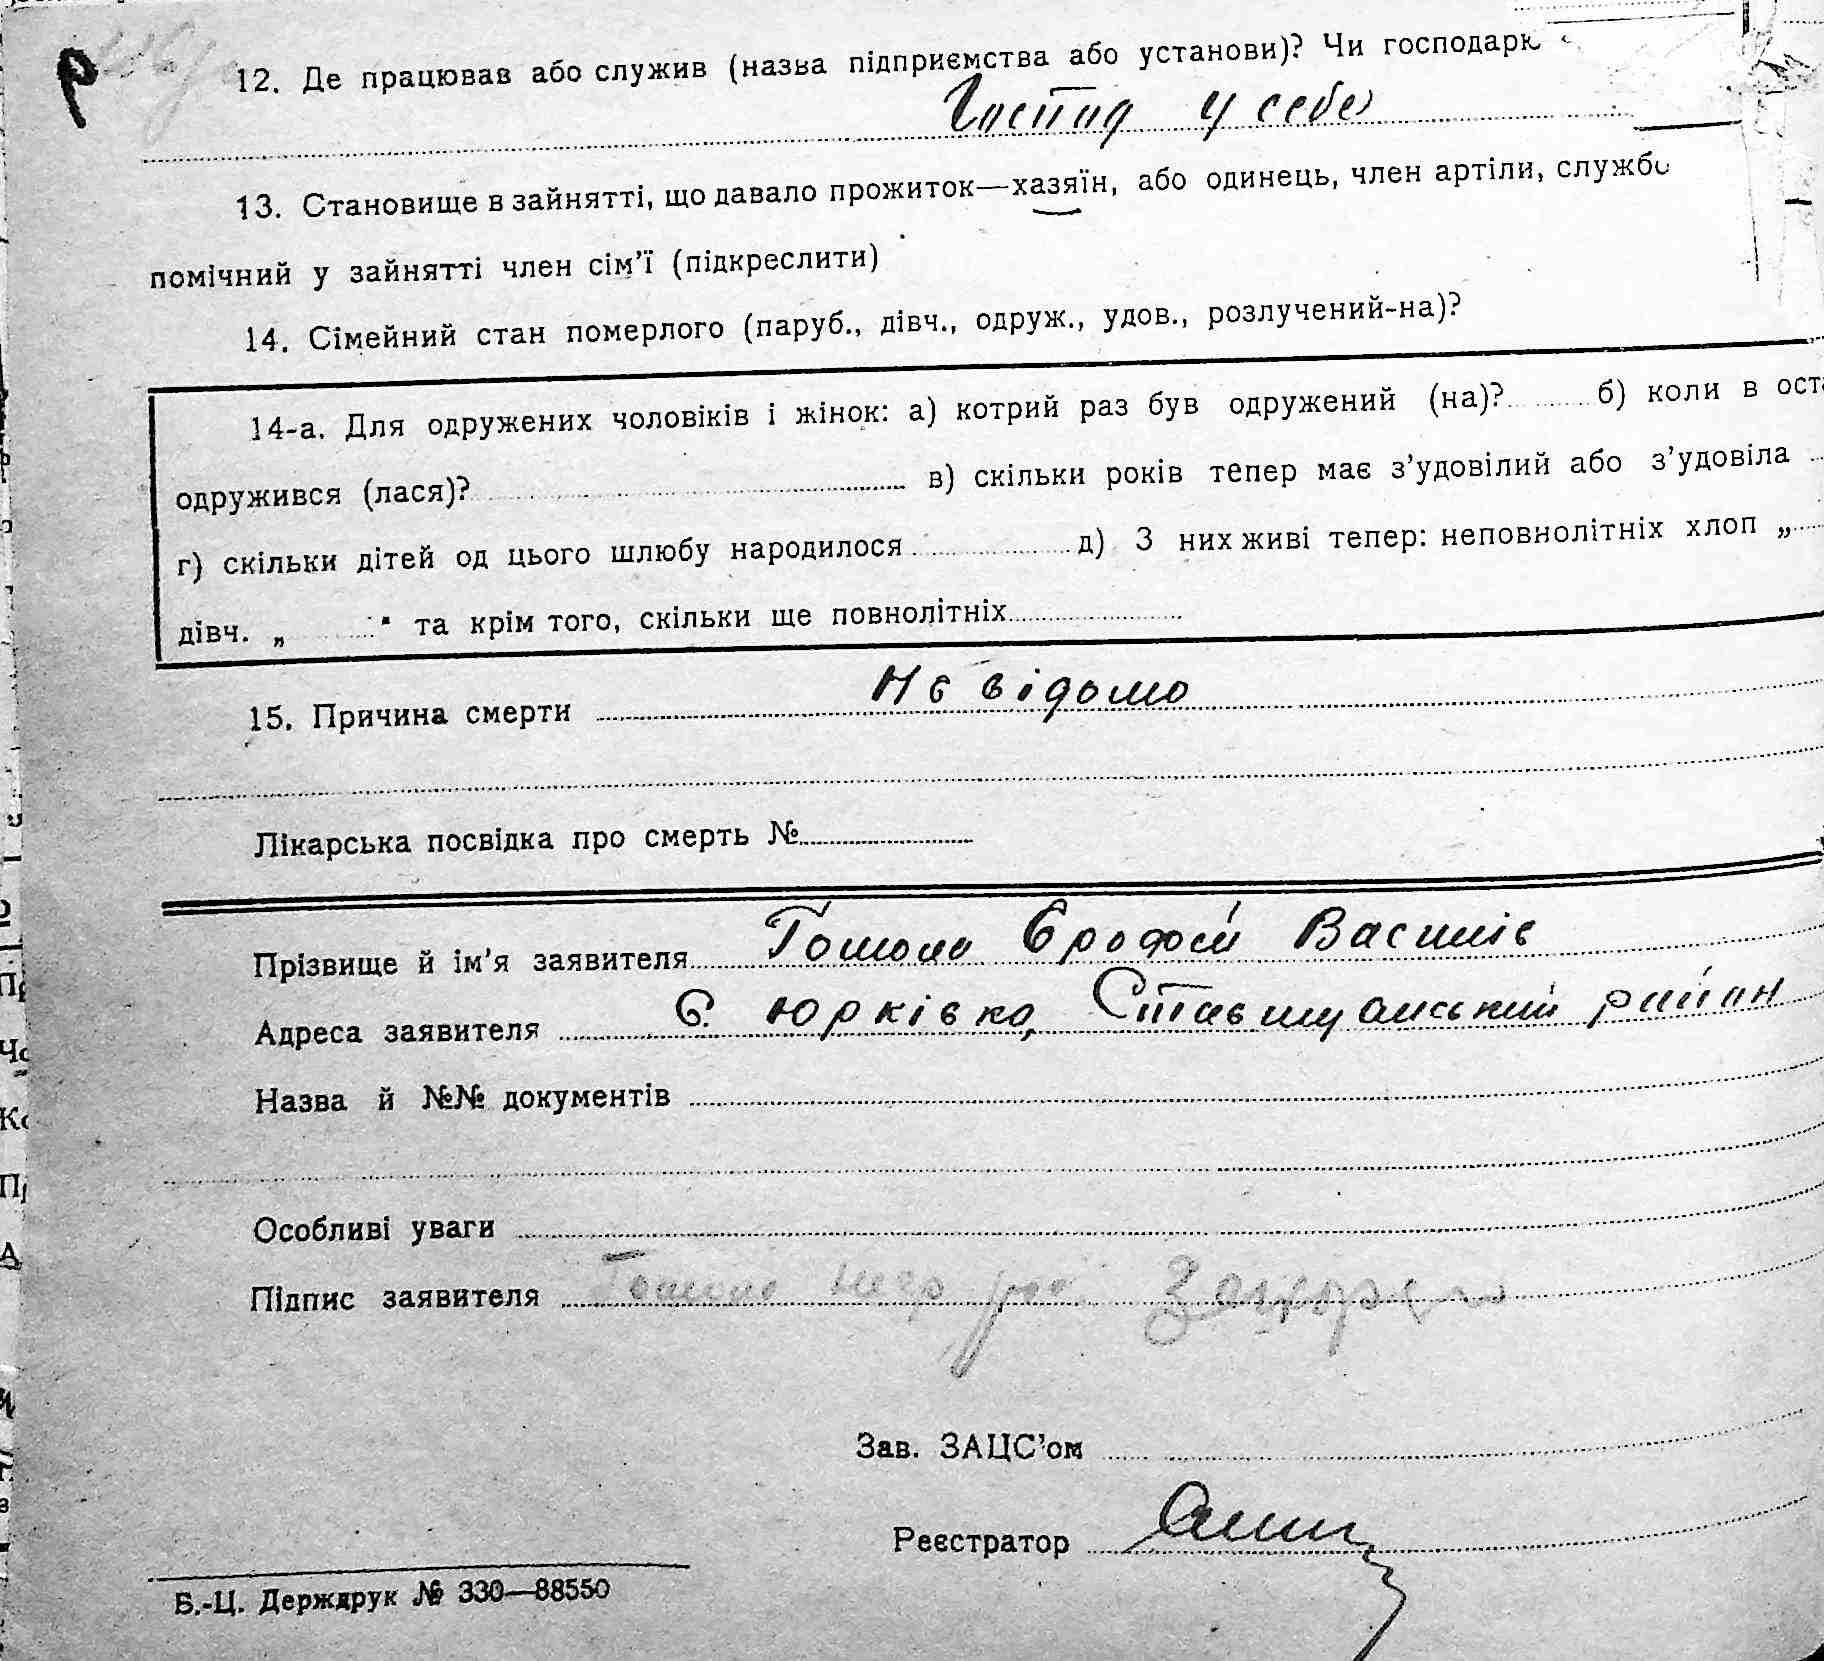 12. Де працював або служив (назва підприємства або установи)? Чи господарк
Господ у себе
13. Становище в зайнятті, що давало прожиток—хазяїн, або одинець, член артіли, службо
помічний у зайнятті член сім’ї (підкреслити)
14. Сімейний стан померлого (паруб., дівч., одруж., удов., розлучений-на)?
14-а. Для одружених чоловіків і жінок: а) котрий раз був одружений (на)? б) коли в оста
одружився (лася)? в) скільки років тепер має з’удовілий або з’удовіла
г) скільки дітей од цього шлюбу народилося д) З них живі тепер: неповнолітніх хлоп „
дівч. „ “ та крім того, скільки ще повнолітніх
15. Причина смерти Не відомо
Лікарська посвідка про смерть №
Прізвище й ім’я заявителя Єрофей Василів
Адреса заявителя С. Юрківка, Ставищанський район
Назва й №№ документів
Особливі уваги
Підпис заявителя
Зав. ЗАЦС’ом
Реєстратор
Б.-Ц. Держдрук № 330—88550